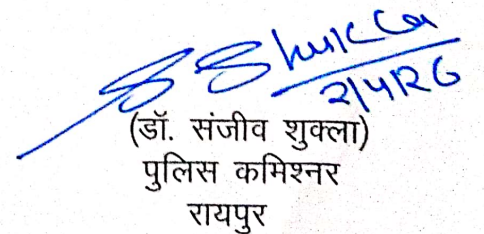 S Shukla
2/4/26
(डॉ. संजीव शुक्ला)
पुलिस कमिश्नर
रायपुर